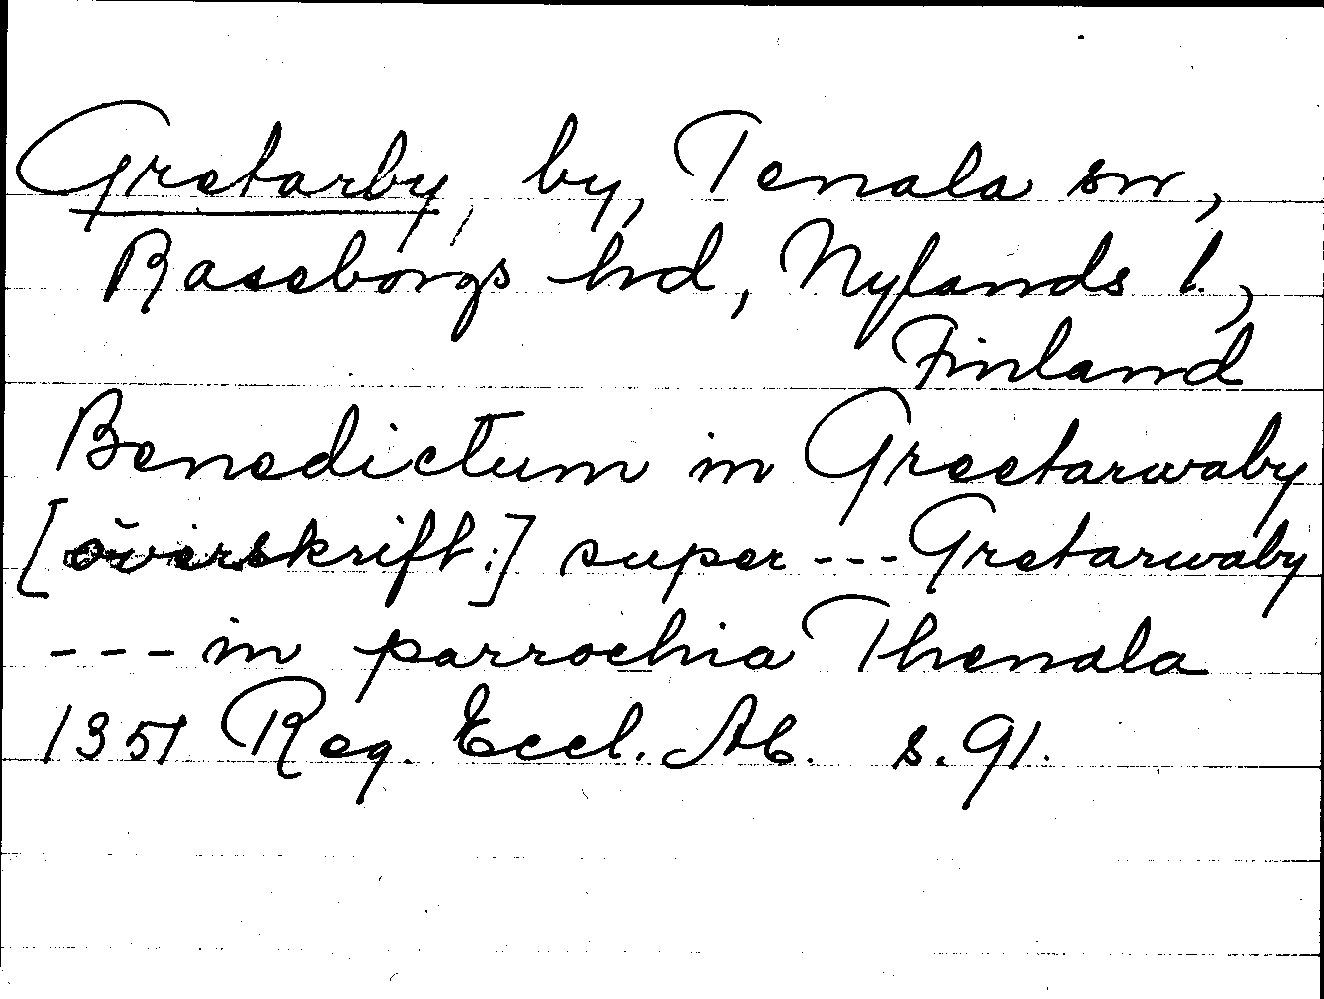 Gretarby, by, Tenala sn,
Raseborgs hd, Nylands l.,
Finland
Benedictum in Greetarwaby
[överskrift:] super --- Gretarwaby
--- in parrochia Thenala
1351 Reg. Eccl. Ab. s. 91.